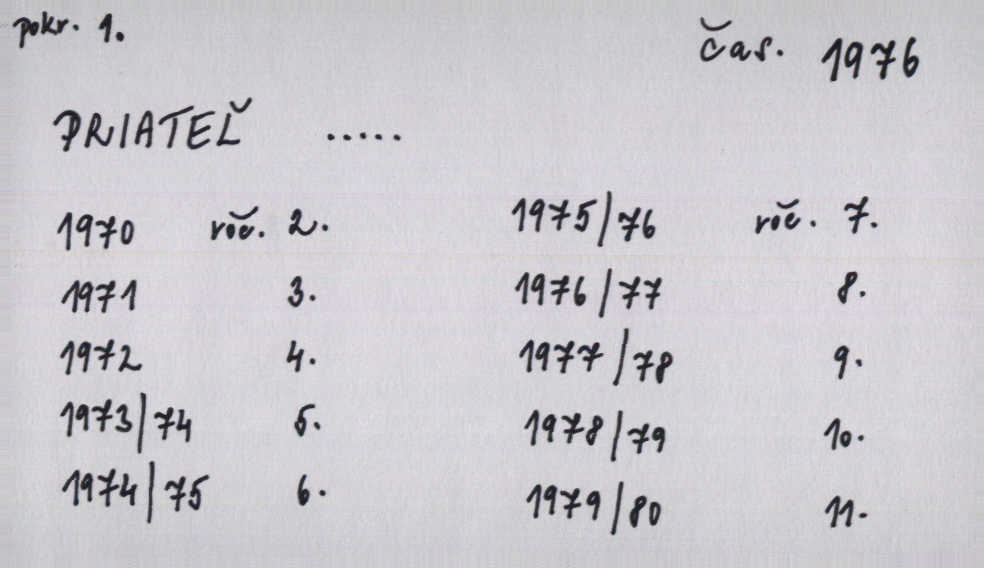 pokr. 1.
čas. 1976
PRIATEĽ .....
1970 roč. 2. 1975/76 roč. 7.
1971 3. 1976/77 8.
1972 4. 1977/78 9.
1973/74 5. 1978/79 10.
1974/75 6. 1979/80 11.